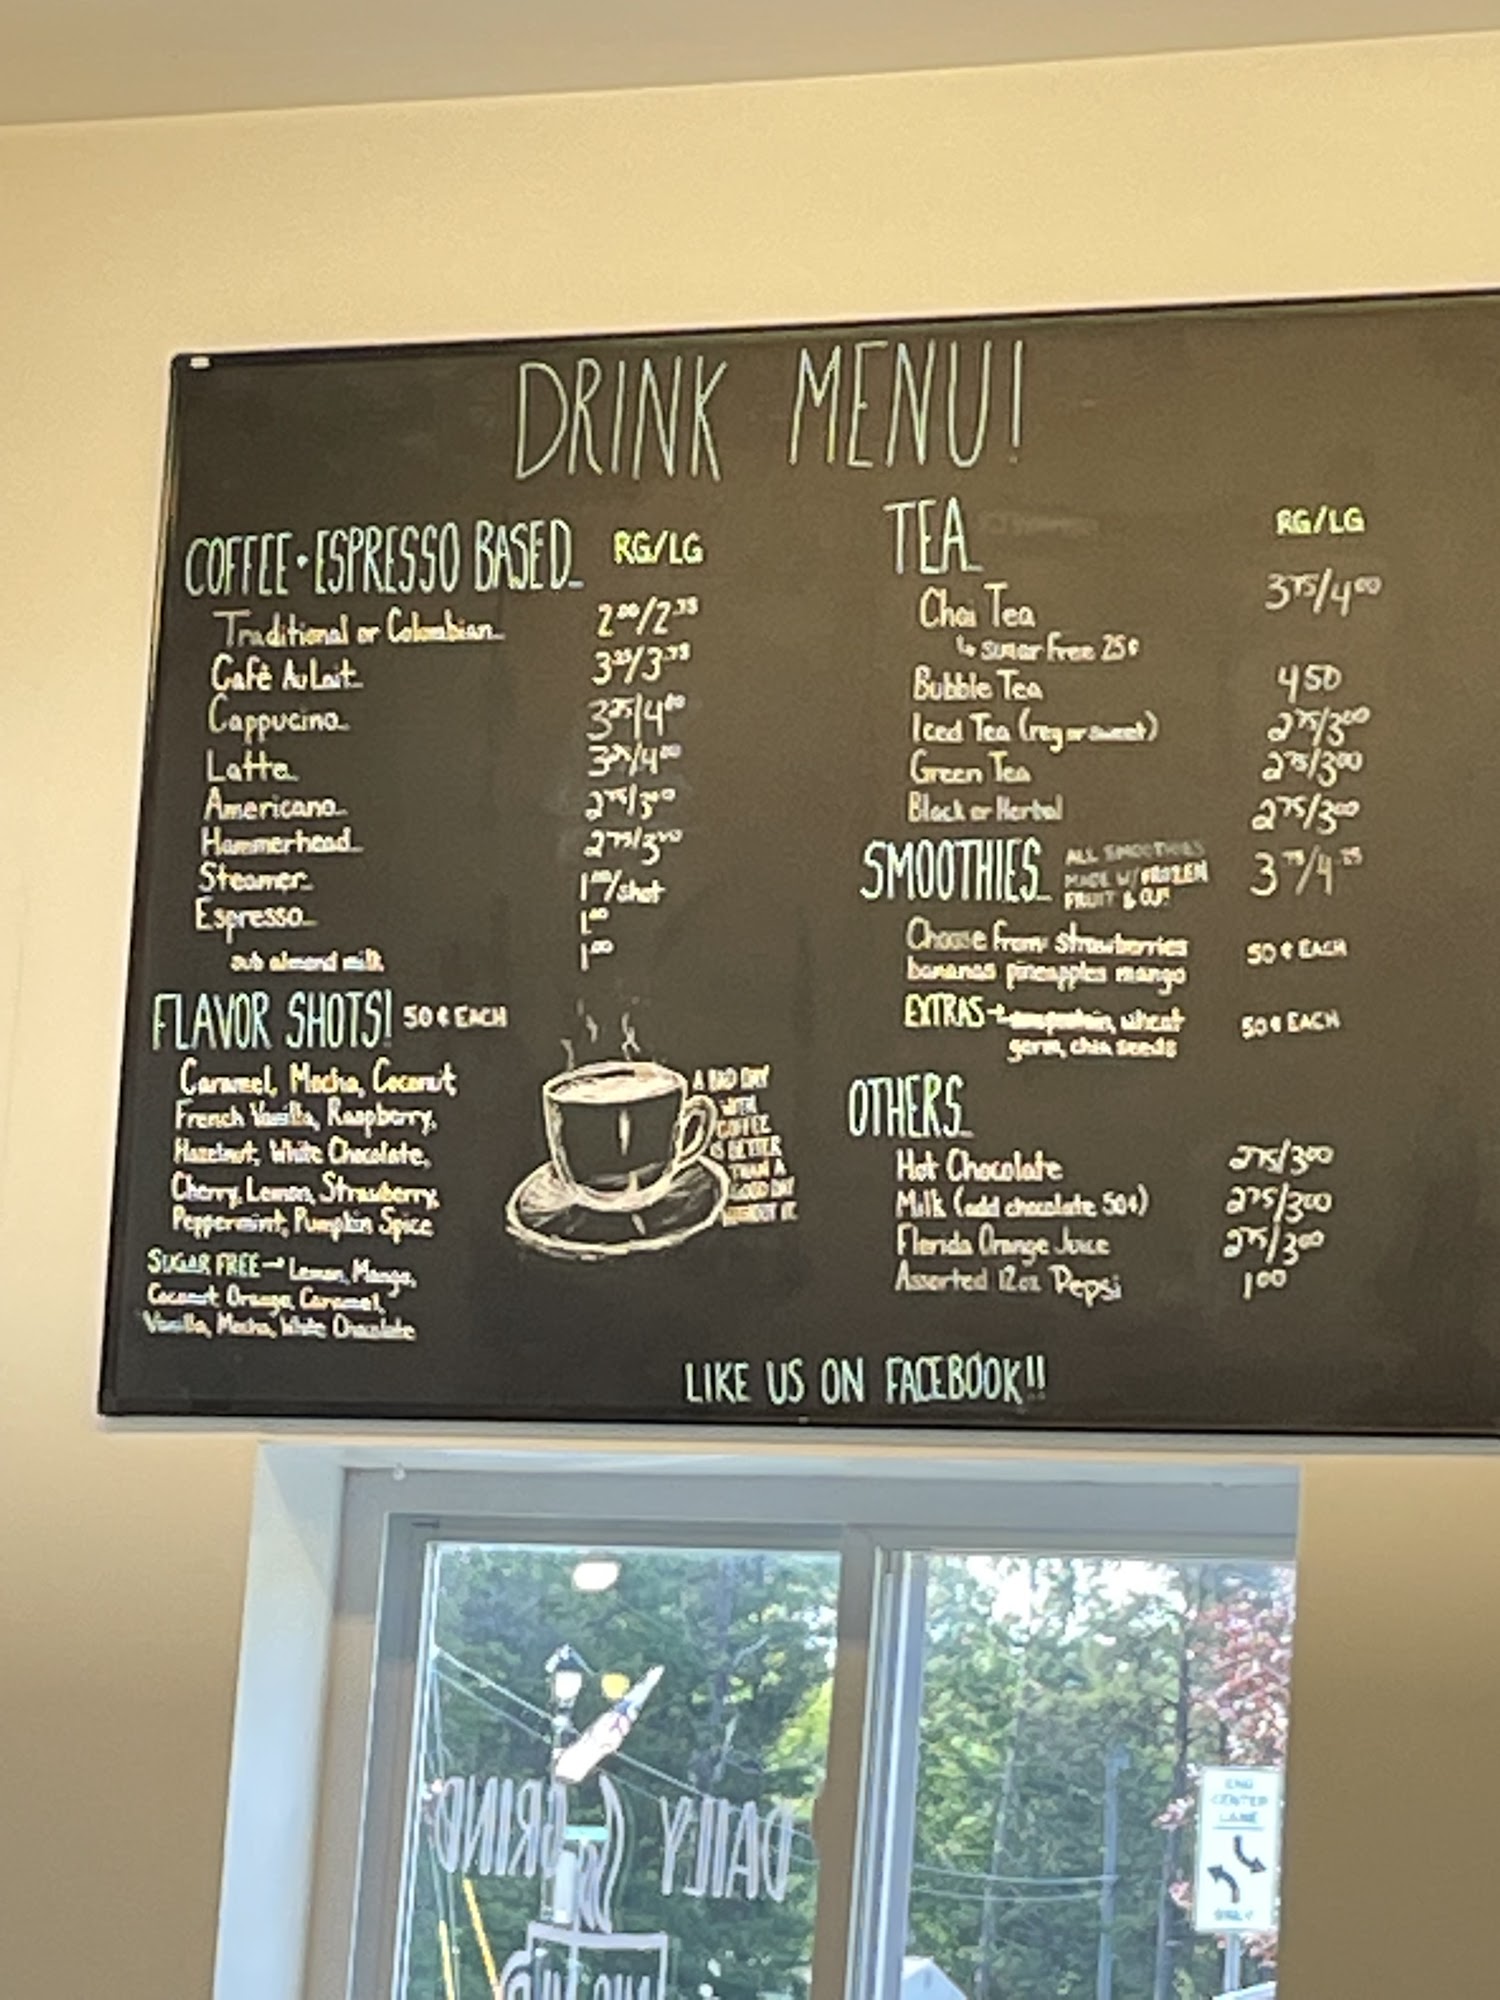 DRINK MENU!
COFFEE • ESPRESSO BASED... RG/LG
Traditional or Colombian... 2.00/2.75
Cafè Au Lait...
Cappucino...
Latte...
Americano... 2.75/3.00
Hammerhead... 2.75/3.00
Steamer... 1.00/shot
Espresso... 1.00
sub almond milk 1.00
FLAVOR SHOTS! 50¢ EACH
Caramel, Mocha, Coconut,
French Vanilla, Raspberry,
Hazelnut, White Chocolate,
Cherry, Lemon, Strawberry,
Peppermint, Pumpkin Spice
SUGAR FREE→ Lemon, Mango,
Coconut, Orange, Caramel,
Vanilla, Mocha, White Chocolate
A BAD DAY
WITH
COFFEE
IS BETTER
THAN A
GOOD DAY
WITHOUT IT.
TEA... RG/LG
Chai Tea 3.75/4.00
↳ sugar free 25¢
Bubble Tea 450
Iced Tea (reg or sweet) 2.75/3.00
Green Tea 2.75/3.00
Black or Herbal 2.75/3.00
SMOOTHIES...
ALL SMOOTHIES
MADE W/ FROZEN
FRUIT & OJ!
Choose from: strawberries
bananas pineapples mango 50¢ EACH
EXTRAS→ wheat
germ, chia seeds 50¢ EACH
OTHERS...
Hot Chocolate 2.75/3.00
Milk (add chocolate 50¢) 2.75/3.00
Florida Orange Juice 2.75/3.00
Assorted 12oz Pepsi 1.00
LIKE US ON FACEBOOK!!
DAILY GRIND
END
CENTER
LANE
ONLY